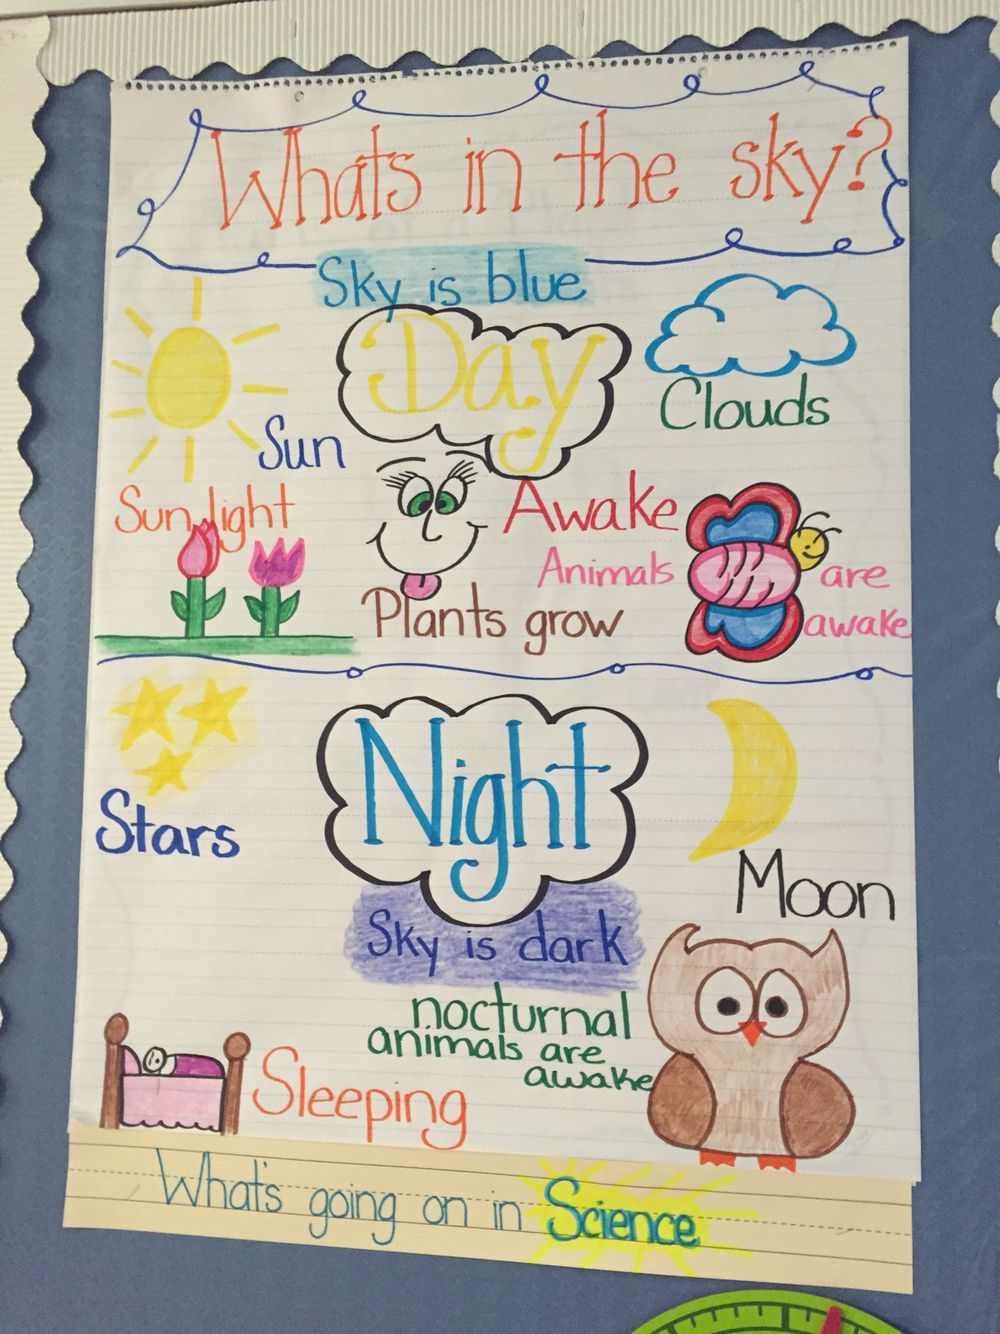 Whats in the sky?
Sky is blue
Day
Clouds
Sun
Sun light
Awake
Animals are
awake
Plants grow
Night
Stars
Moon
Sky is dark
nocturnal
animals are
awake
Sleeping
What's going on in Science